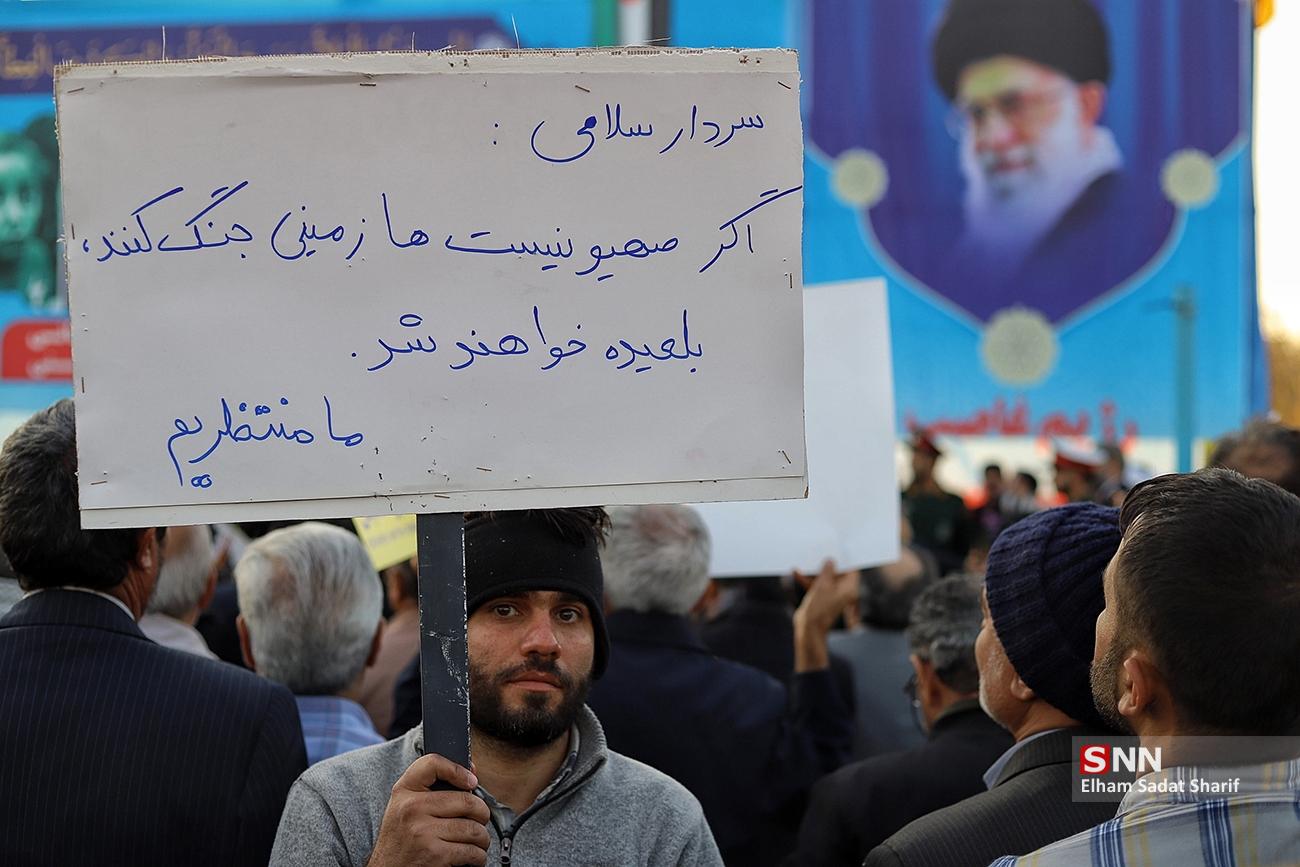 سردار سلامی :
اگر صهیونیست ها زمینی جنگ کنند،
بلعیده خواهند شد.
ما منتظریم
رژیم غاصب
SNN
Elham Sadat Sharif